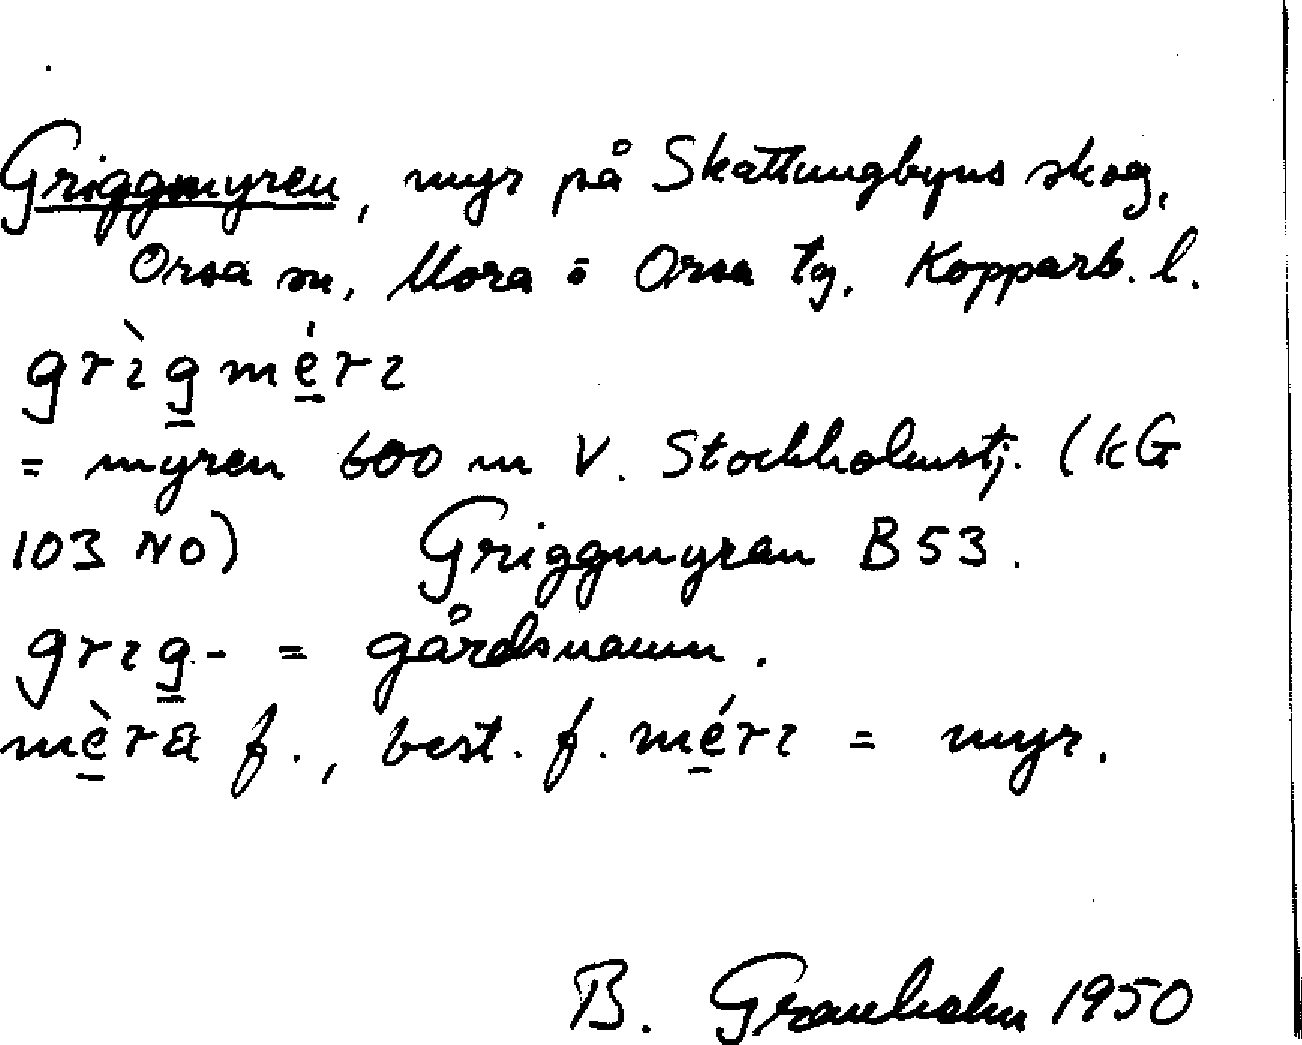 Griggmyren, myr på Skattungbyns skog,
Orsa sn, Mora o Orsa tg. Kopparb. l.
grìgmérɩ
= myren 600 m V. Stockholmstj. (kG
103 NO) Griggmyran B53.
grɩg- = gårdsnamn.
mèra f., best. f. mérɩ = myr.
B. Granholm 1950